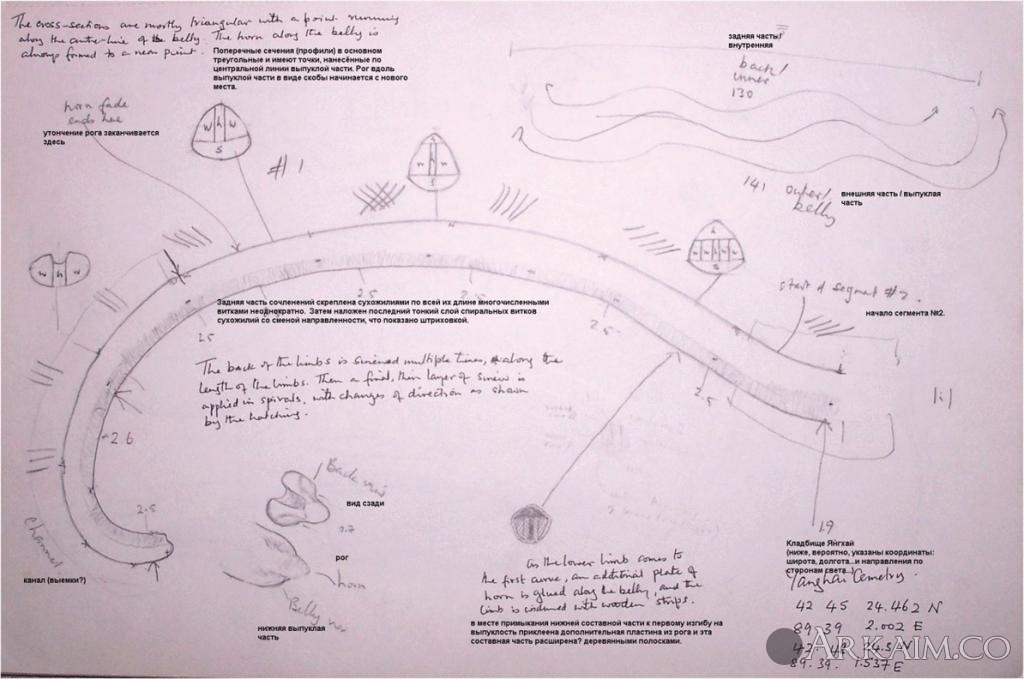 The cross-sections are mostly triangular with a point running
along the centre-line of the belly. The horn along the belly is
always formed to a near point.
Поперечные сечения (профили) в основном
треугольные и имеют точки, нанесённые по
центральной линии выпуклой части. Рог вдоль
выпуклой части в виде скобы начинается с нового
места.
задняя часть/
внутренняя
back/
inner
130
horn fade
ends here
утончение рога заканчивается
здесь
w h w
s
#1
h
s
141 outer/
belly
внешняя часть / выпуклая
часть
w h w
h
s
start of segment #2.
начало сегмента №2.
2.5
2.5
Задняя часть сочленений скреплена сухожилиями по всей их длине многочисленными
витками неоднократно. Затем наложен последний тонкий слой спиральных витков
сухожилий со сменой направленности, что показано штриховкой.
2.5
2.5
The back of the limbs is sinewed multiple times, along the
length of the limbs. Then a final, thin layer of sinew is
applied in spirals, with changes of direction as shown
by the hatching.
2.5
2.6
2.5
Back view
вид сзади
рог
horn
channel
канал (выемки?)
Belly
нижняя выпуклая
часть
1.9
Кладбище Янгхай
(ниже, вероятно, указаны координаты:
широта, долгота...и направления по
сторонам света...)
Yanghai Cemetery.
42 45 24.462 N
89 39 2.002 E
89. 39. 1.537 E
as the lower limb comes to
the first curve, an additional plate of
horn is glued along the belly, and the
limb is widened with wooden strips.
в месте примыкания нижней составной части к первому изгибу на
выпуклость приклеена дополнительная пластина из рога и эта
составная часть расширена? деревянными полосками.
ARKAIM.CO